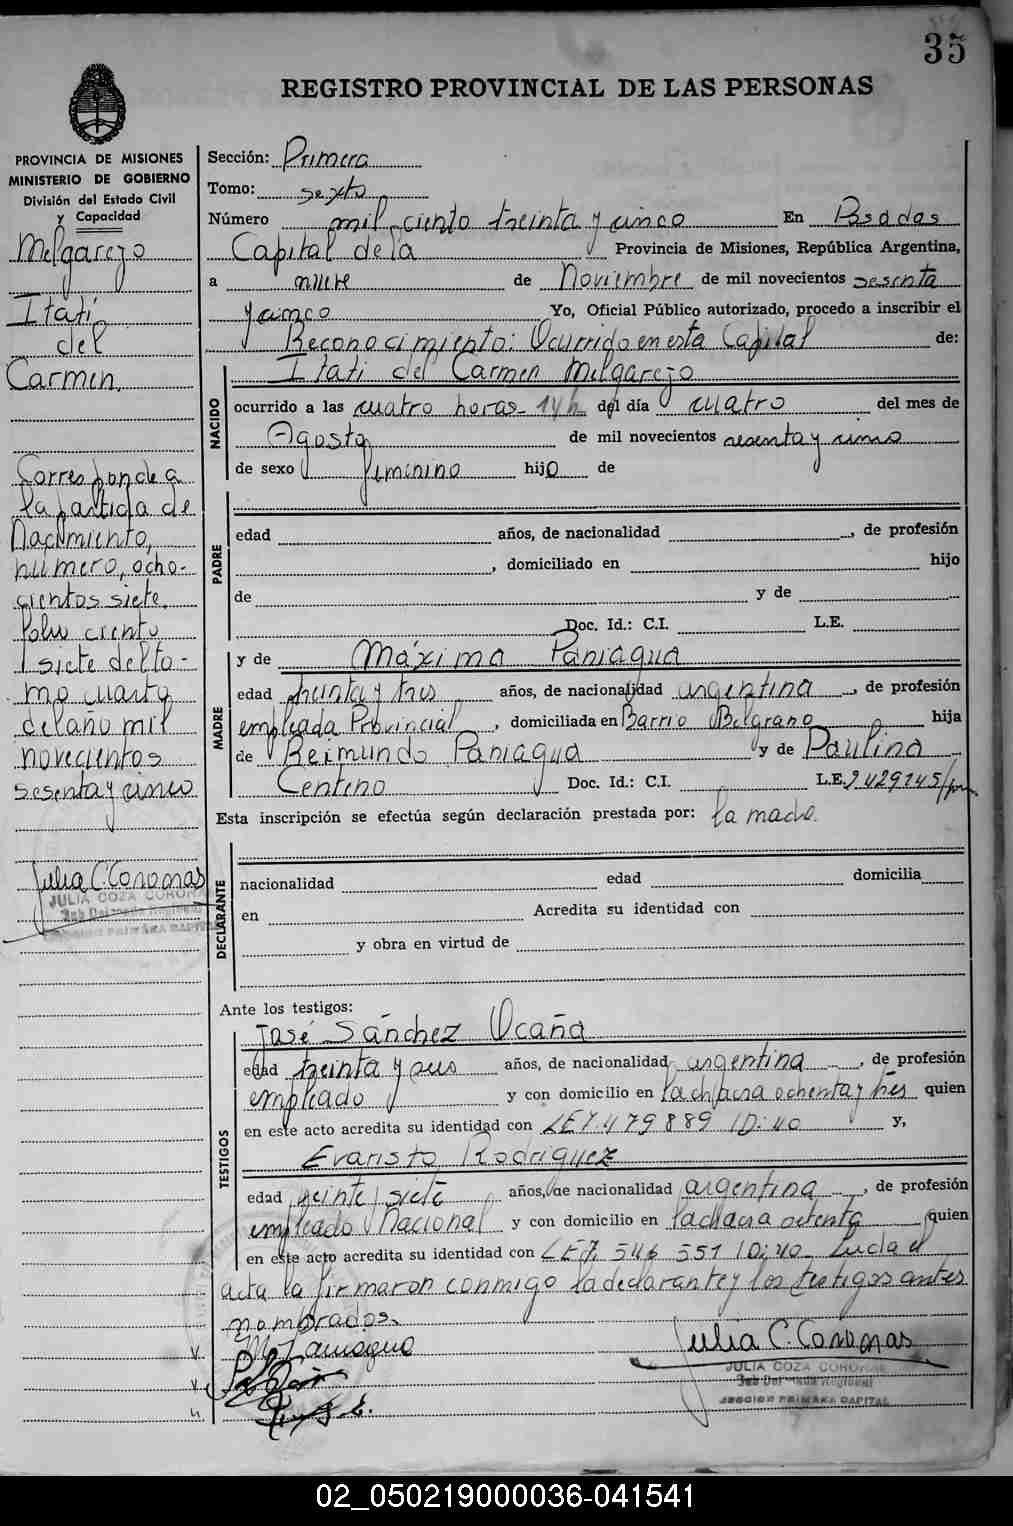 35
REGISTRO PROVINCIAL DE LAS PERSONAS
PROVINCIA DE MISIONES
MINISTERIO DE GOBIERNO
División del Estado Civil
y Capacidad
Melgarejo
Itatí
del
Carmen.
Corresponde a
la partida de
Nacimiento,
número, ocho-
cientos siete,
folio ciento
siete del to-
mo cuarto
del año mil
novecientos
sesenta y cinco
Julia C. Coronas
JULIA COZA CORONAS
Sub Delegada Regional
SECCION PRIMERA CAPITAL
Sección: Primera
Tomo: sexto
Número mil ciento treinta y cinco En Posadas
Capital de la Provincia de Misiones, República Argentina,
a nueve de Noviembre de mil novecientos sesenta
y cinco Yo, Oficial Público autorizado, procedo a inscribir el
Reconocimiento: Ocurrido en esta Capital de:
Itatí del Carmen Melgarejo
NACIDO
ocurrido a las cuatro horas- 14h del día cuatro del mes de
Agosto de mil novecientos sesenta y cinco
de sexo femenino hijo de
PADRE
edad años, de nacionalidad , de profesión
, domiciliado en hijo
de y de
Doc. Id.: C.I. L.E.
y de Máxima Paniagua
MADRE
edad treinta y tres años, de nacionalidad argentina , de profesión
empleada Provincial , domiciliada en Barrio Belgrano hija
de Reimundo Paniagua y de Paulina
Centeno Doc. Id.: C.I. L.E. 2429145
Esta inscripción se efectúa según declaración prestada por: la madre.
DECLARANTE
nacionalidad edad domicilia
en Acredita su identidad con
y obra en virtud de
Ante los testigos:
TESTIGOS
José Sánchez Ocaña
edad treinta y seis años, de nacionalidad argentina , de profesión
empleado y con domicilio en la chacra ochenta y tres quien
en este acto acredita su identidad con LE7.479889 y,
Evaristo Rodriguez
edad veinte siete años, de nacionalidad argentina , de profesión
empleado Nacional y con domicilio en la chacra ochenta quien
en este acto acredita su identidad con LE7. 546 551 Leida el
acta la firmaron conmigo la declarante y los testigos antes
nombrados.
M Paniagua
Julia C. Coronas
JULIA COZA CORONAS
Sub Delegada Regional
SECCION PRIMERA CAPITAL
02_050219000036-041541